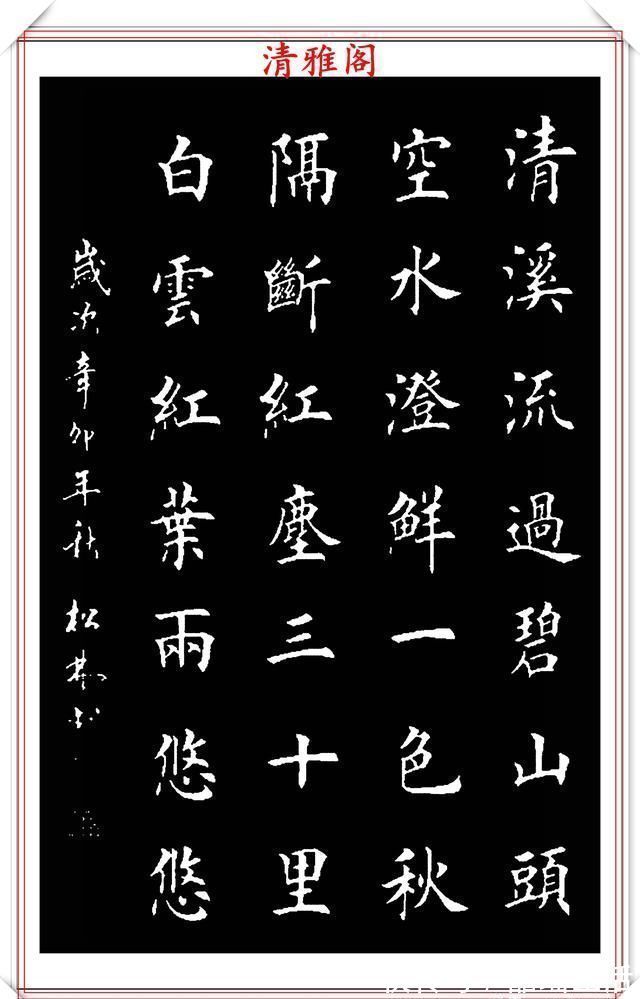 清雅阁
清溪流過碧山頭
空水澄鮮一色秋
隔斷紅塵三十里
白雲紅葉兩悠悠
歲次辛卯年秋 松